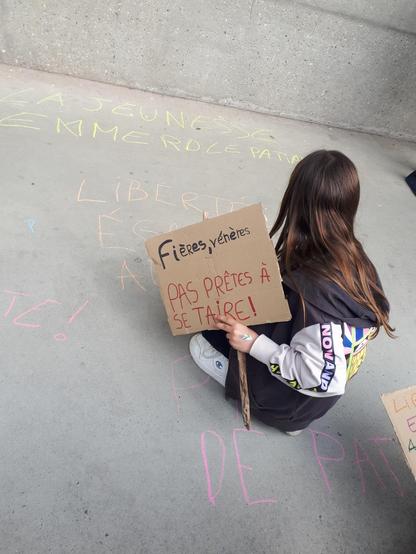 LA JEUNESSE
EMMERDE LE PATRI
LIBERTÉ
ÉGA
A
TC!
Fières, vénères
PAS PRÊTES À
SE TAIRE!
P
DE PAT
NOWAND
LI
E
A